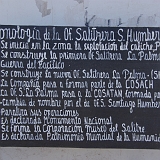 Cronología de la Of. Salitrera S. Humbers
Se inicia en la zona la explotación del caliche, P
Se construye la primera Of. Salitrera La Palma
Guerra del Pacífico
Se construye la nueva Of. Salitrera La Palma
La Compañía pasa a formar parte de la COSACH
La Of. S. La Palma pasa a la COSATAN formada po
cambia de nombre por el de Of. S. Santiago Humbers
Paraliza sus operaciones
Es declarada Monumento Nacional
Se forma la Corporación Museo del Salitre
Es declarada Patrimonio Mundial de la Humanid